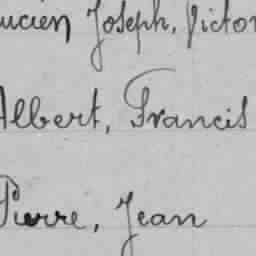 Lucien Joseph, Victor
Albert, Francis
Pierre, Jean